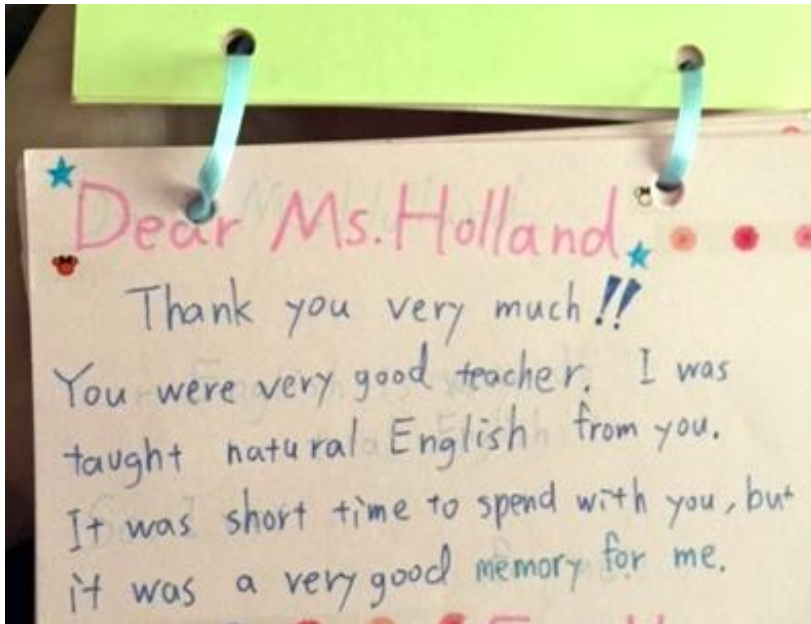 Dear Ms. Holland
Thank you very much!!
You were very good teacher. I was
taught natural English from you.
It was short time to spend with you, but
it was a very good memory for me.